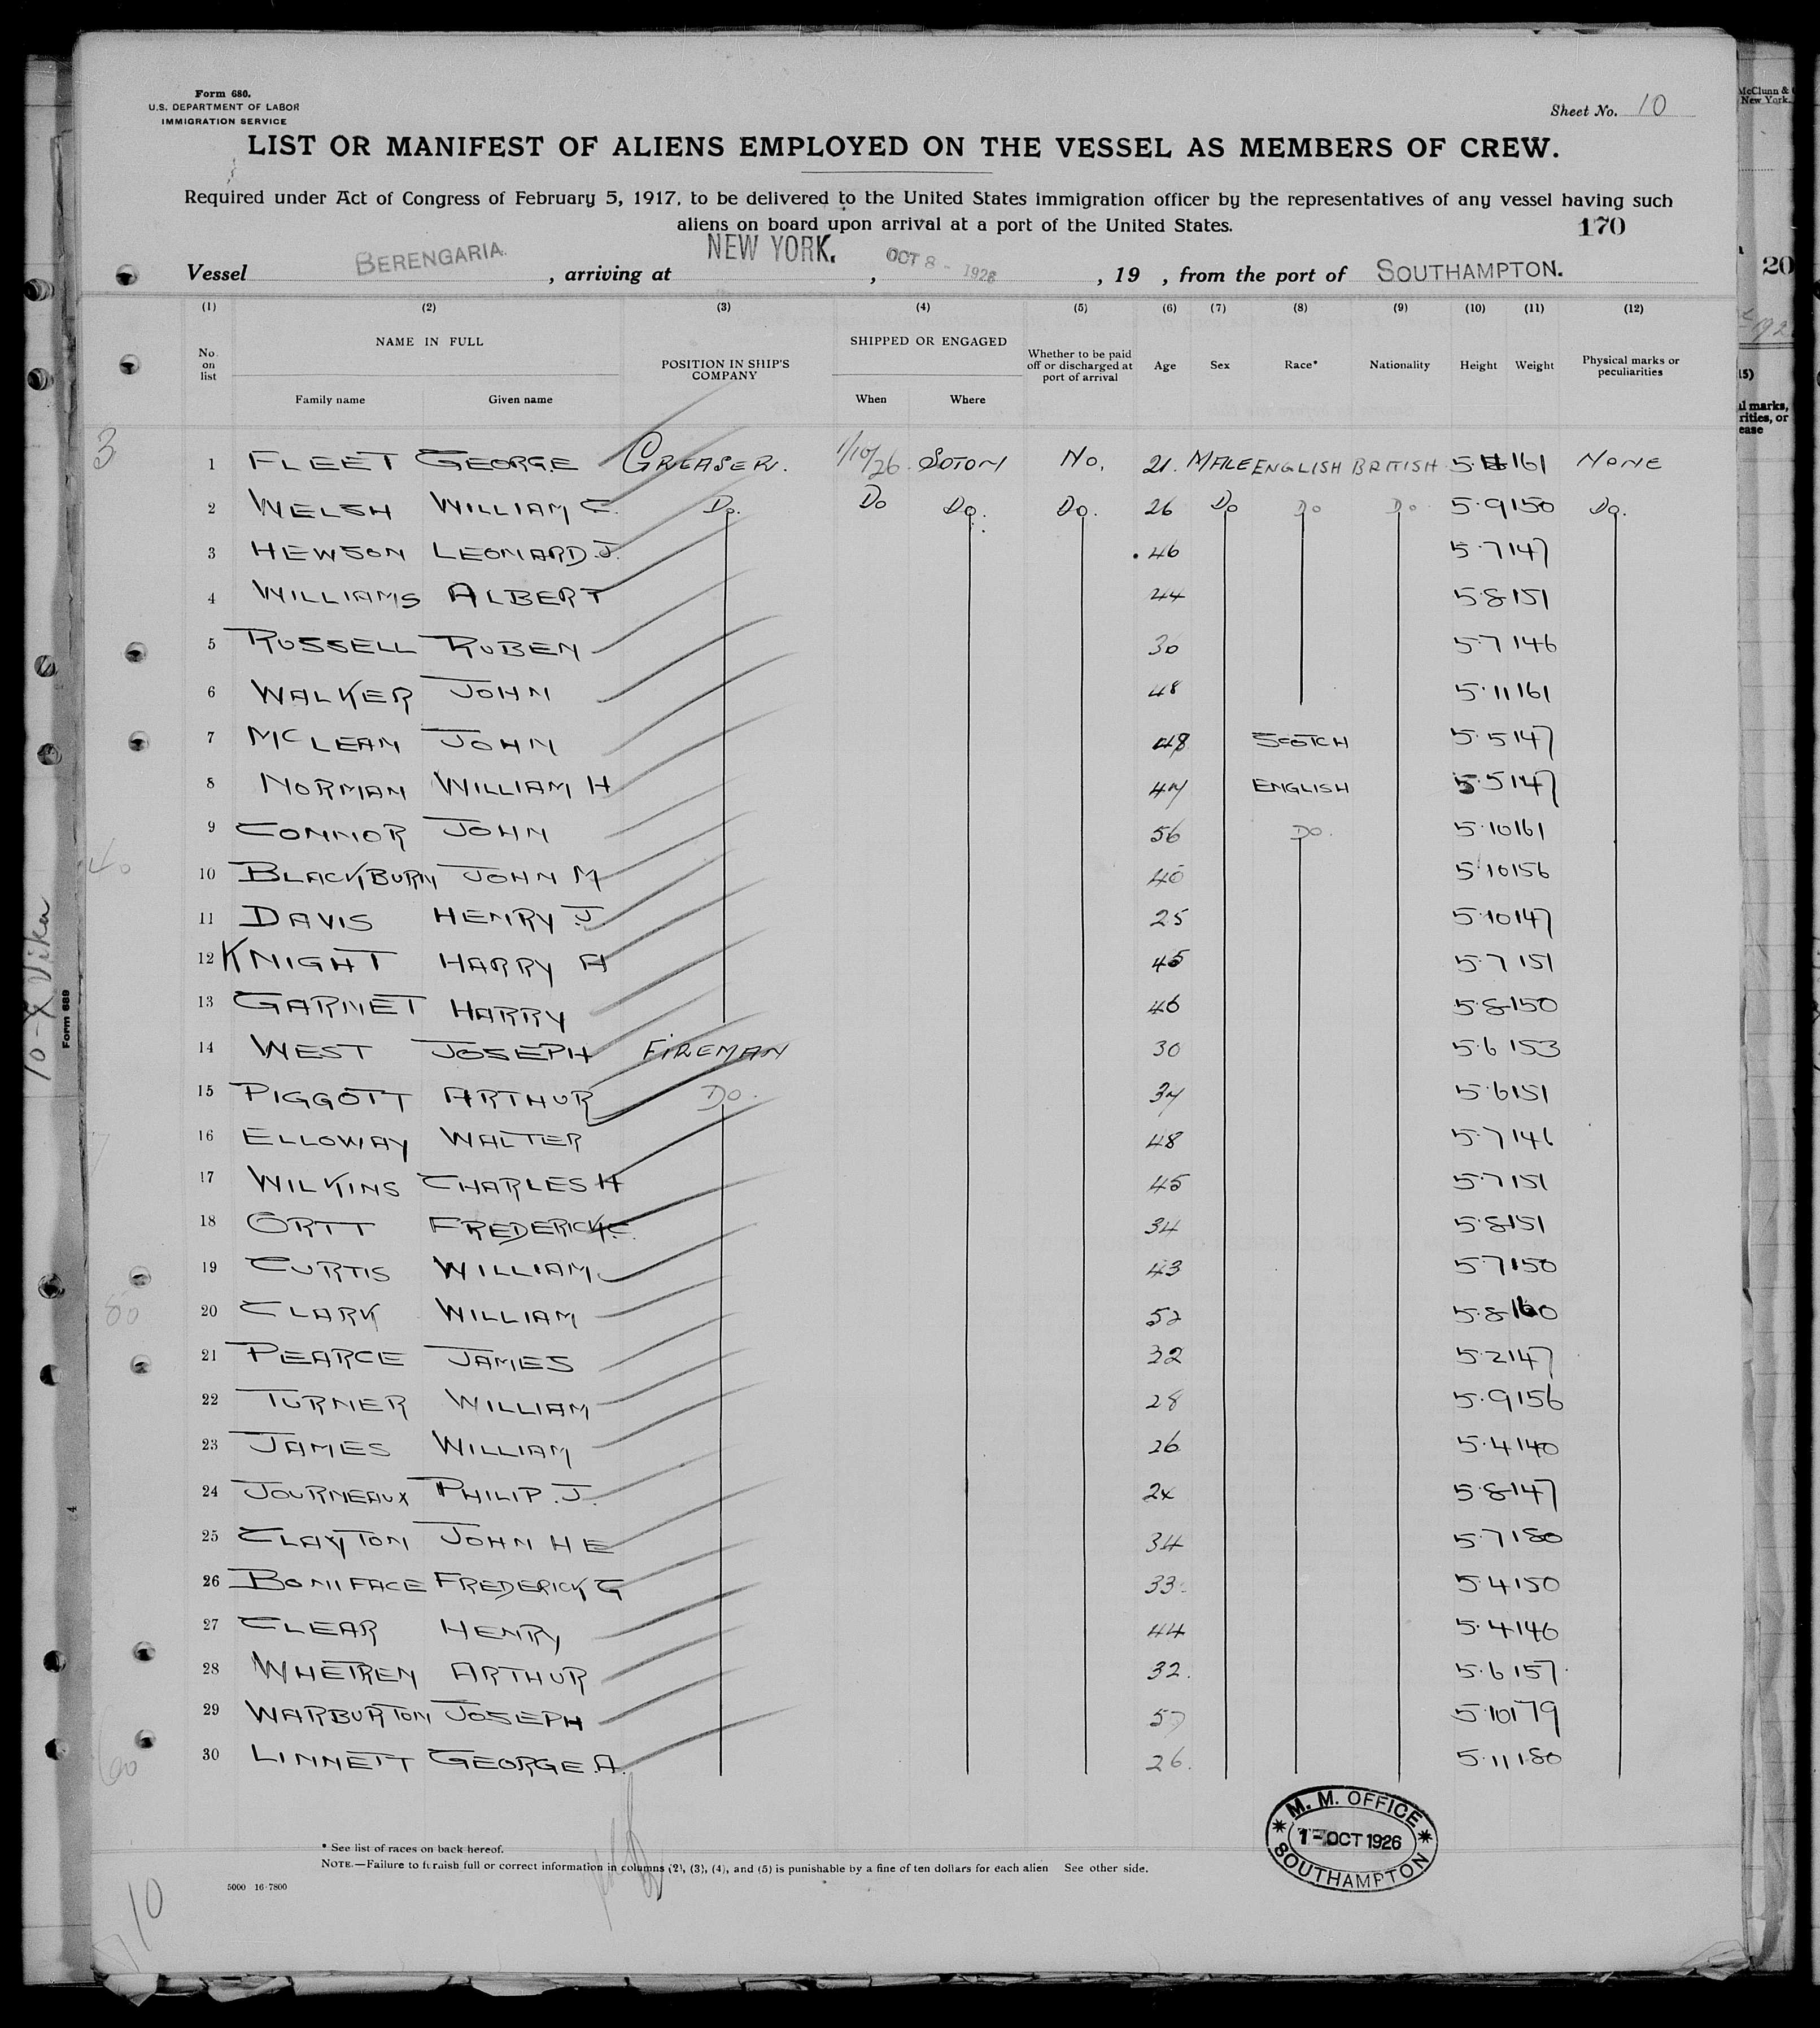 Form 680.
U.S. DEPARTMENT OF LABOR
IMMIGRATION SERVICE
Sheet No. 10
LIST OR MANIFEST OF ALIENS EMPLOYED ON THE VESSEL AS MEMBERS OF CREW.
Required under Act of Congress of February 5, 1917, to be delivered to the United States immigration officer by the representatives of any vessel having such
aliens on board upon arrival at a port of the United States.
170
Vessel BERENGARIA. , arriving at NEW YORK. , OCT 8 - 1926 , 19 , from the port of SOUTHAMPTON.
(1) (2) (3) (4) (5) (6) (7) (8) (9) (10) (11) (12)
No. on list NAME IN FULL Family name Given name POSITION IN SHIP'S COMPANY SHIPPED OR ENGAGED When Where Whether to be paid off or discharged at port of arrival Age Sex Race* Nationality Height Weight Physical marks or peculiarities
3
1 FLEET GEORGE GREASER. 1/10/26 SOTON No. 21. MALE ENGLISH BRITISH 5. 161 NONE
2 WELSH WILLIAM C. Do. Do Do. Do. 26 Do Do Do 5.9 150 Do.
3 HEWSON LEONARD.J. 46 5.7 147
4 WILLIAMS ALBERT 44 5.8 151
5 RUSSELL RUBEN 30 5.7 146
6 WALKER JOHN 48 5.11 161
7 MCLEAN JOHN 48 SCOTCH 5.5 147
8 NORMAN WILLIAM H 47 ENGLISH 5.5 147
9 CONNOR JOHN 56 DO. 5.10 161
10 BLACKBURN JOHN M 40 5.10 156
11 DAVIS HENRY J. 25 5.10 147
12 KNIGHT HARRY A 45 5.7 151
13 GARNET HARRY 46 5.8 150
14 WEST JOSEPH FIREMAN 30 5.6 153
15 PIGGOTT ARTHUR DO. 34 5.6 151
16 ELLOWAY WALTER 48 5.7 146
17 WILKINS CHARLES H 45 5.7 151
18 ORTT FREDERICK C. 34 5.8 151
19 CURTIS WILLIAM 43 5.7 150
20 CLARK WILLIAM 52 5.8 160
21 PEARCE JAMES 32 5.2 147
22 TURNER WILLIAM 28 5.9 156
23 JAMES WILLIAM 26 5.4 140
24 JOURNEAUX PHILIP.J. 24 5.8 147
25 CLAYTON JOHN H E 34 5.7 180
26 BONIFACE FREDERICK G 33 5.4 150
27 CLEAR HENRY 44 5.4 146
28 WHETREN ARTHUR 32. 5.6 157
29 WARBURTON JOSEPH 57 5.10 179
30 LINNETT GEORGE.A. 26. 5.11 180
40
50
60
M. M. OFFICE
1-OCT 1926
SOUTHAMPTON
* See list of races on back hereof.
NOTE.—Failure to furnish full or correct information in columns (2), (3), (4), and (5) is punishable by a fine of ten dollars for each alien See other side.
5000 16-7800
10
Form 689
McClunn &
New York.
20